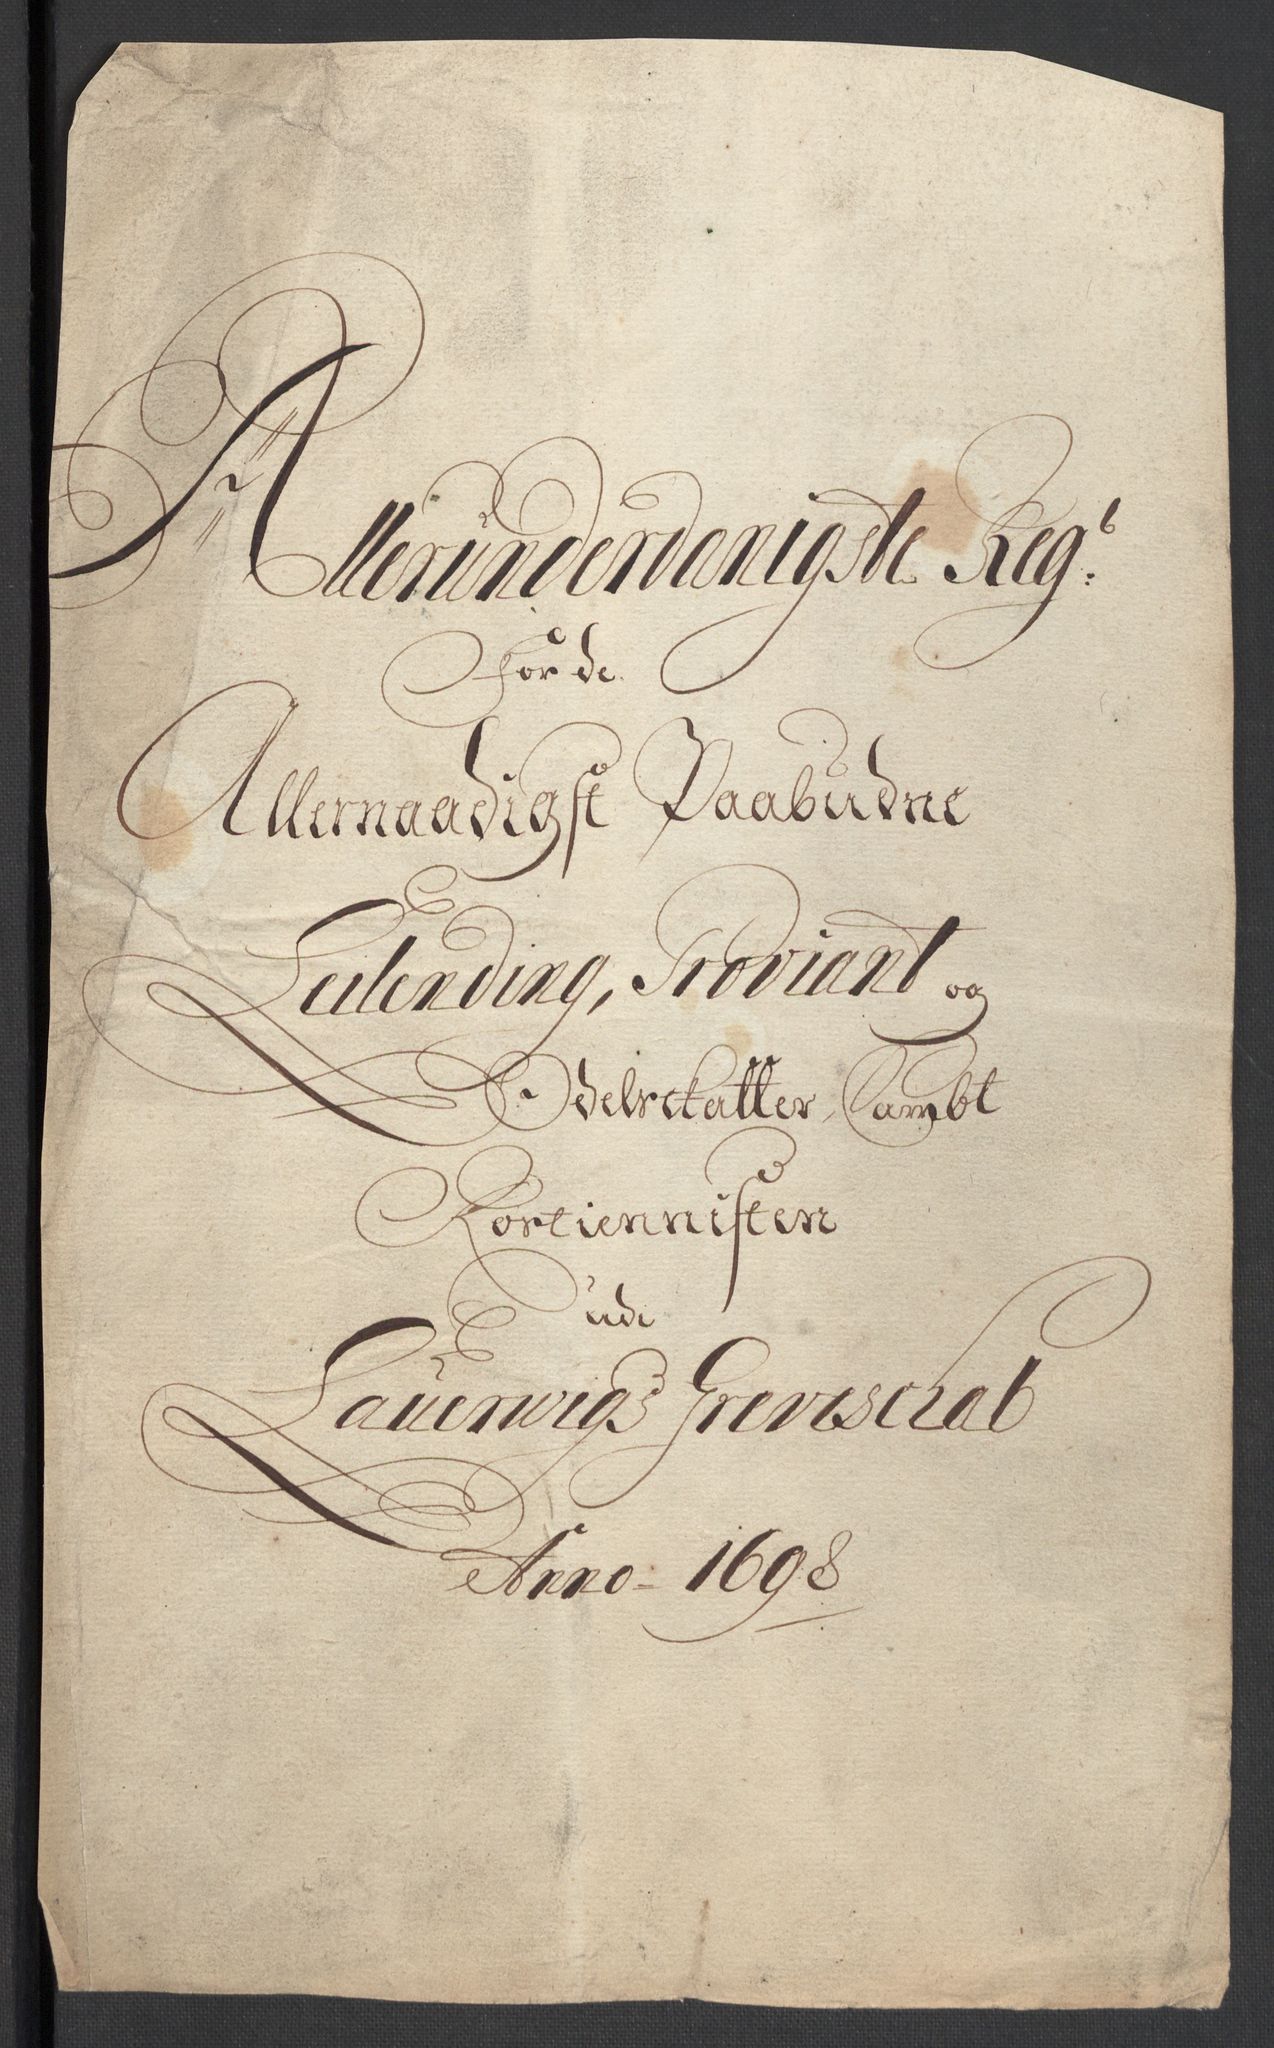 Allerunderdanigste Regb:
For de
Allernaadigst Paabudne
Leilending, Proviant og
Odelsskatter, Sambt
Rostiennisten
udi
Lauerwigs Grevischab
Anno 1698